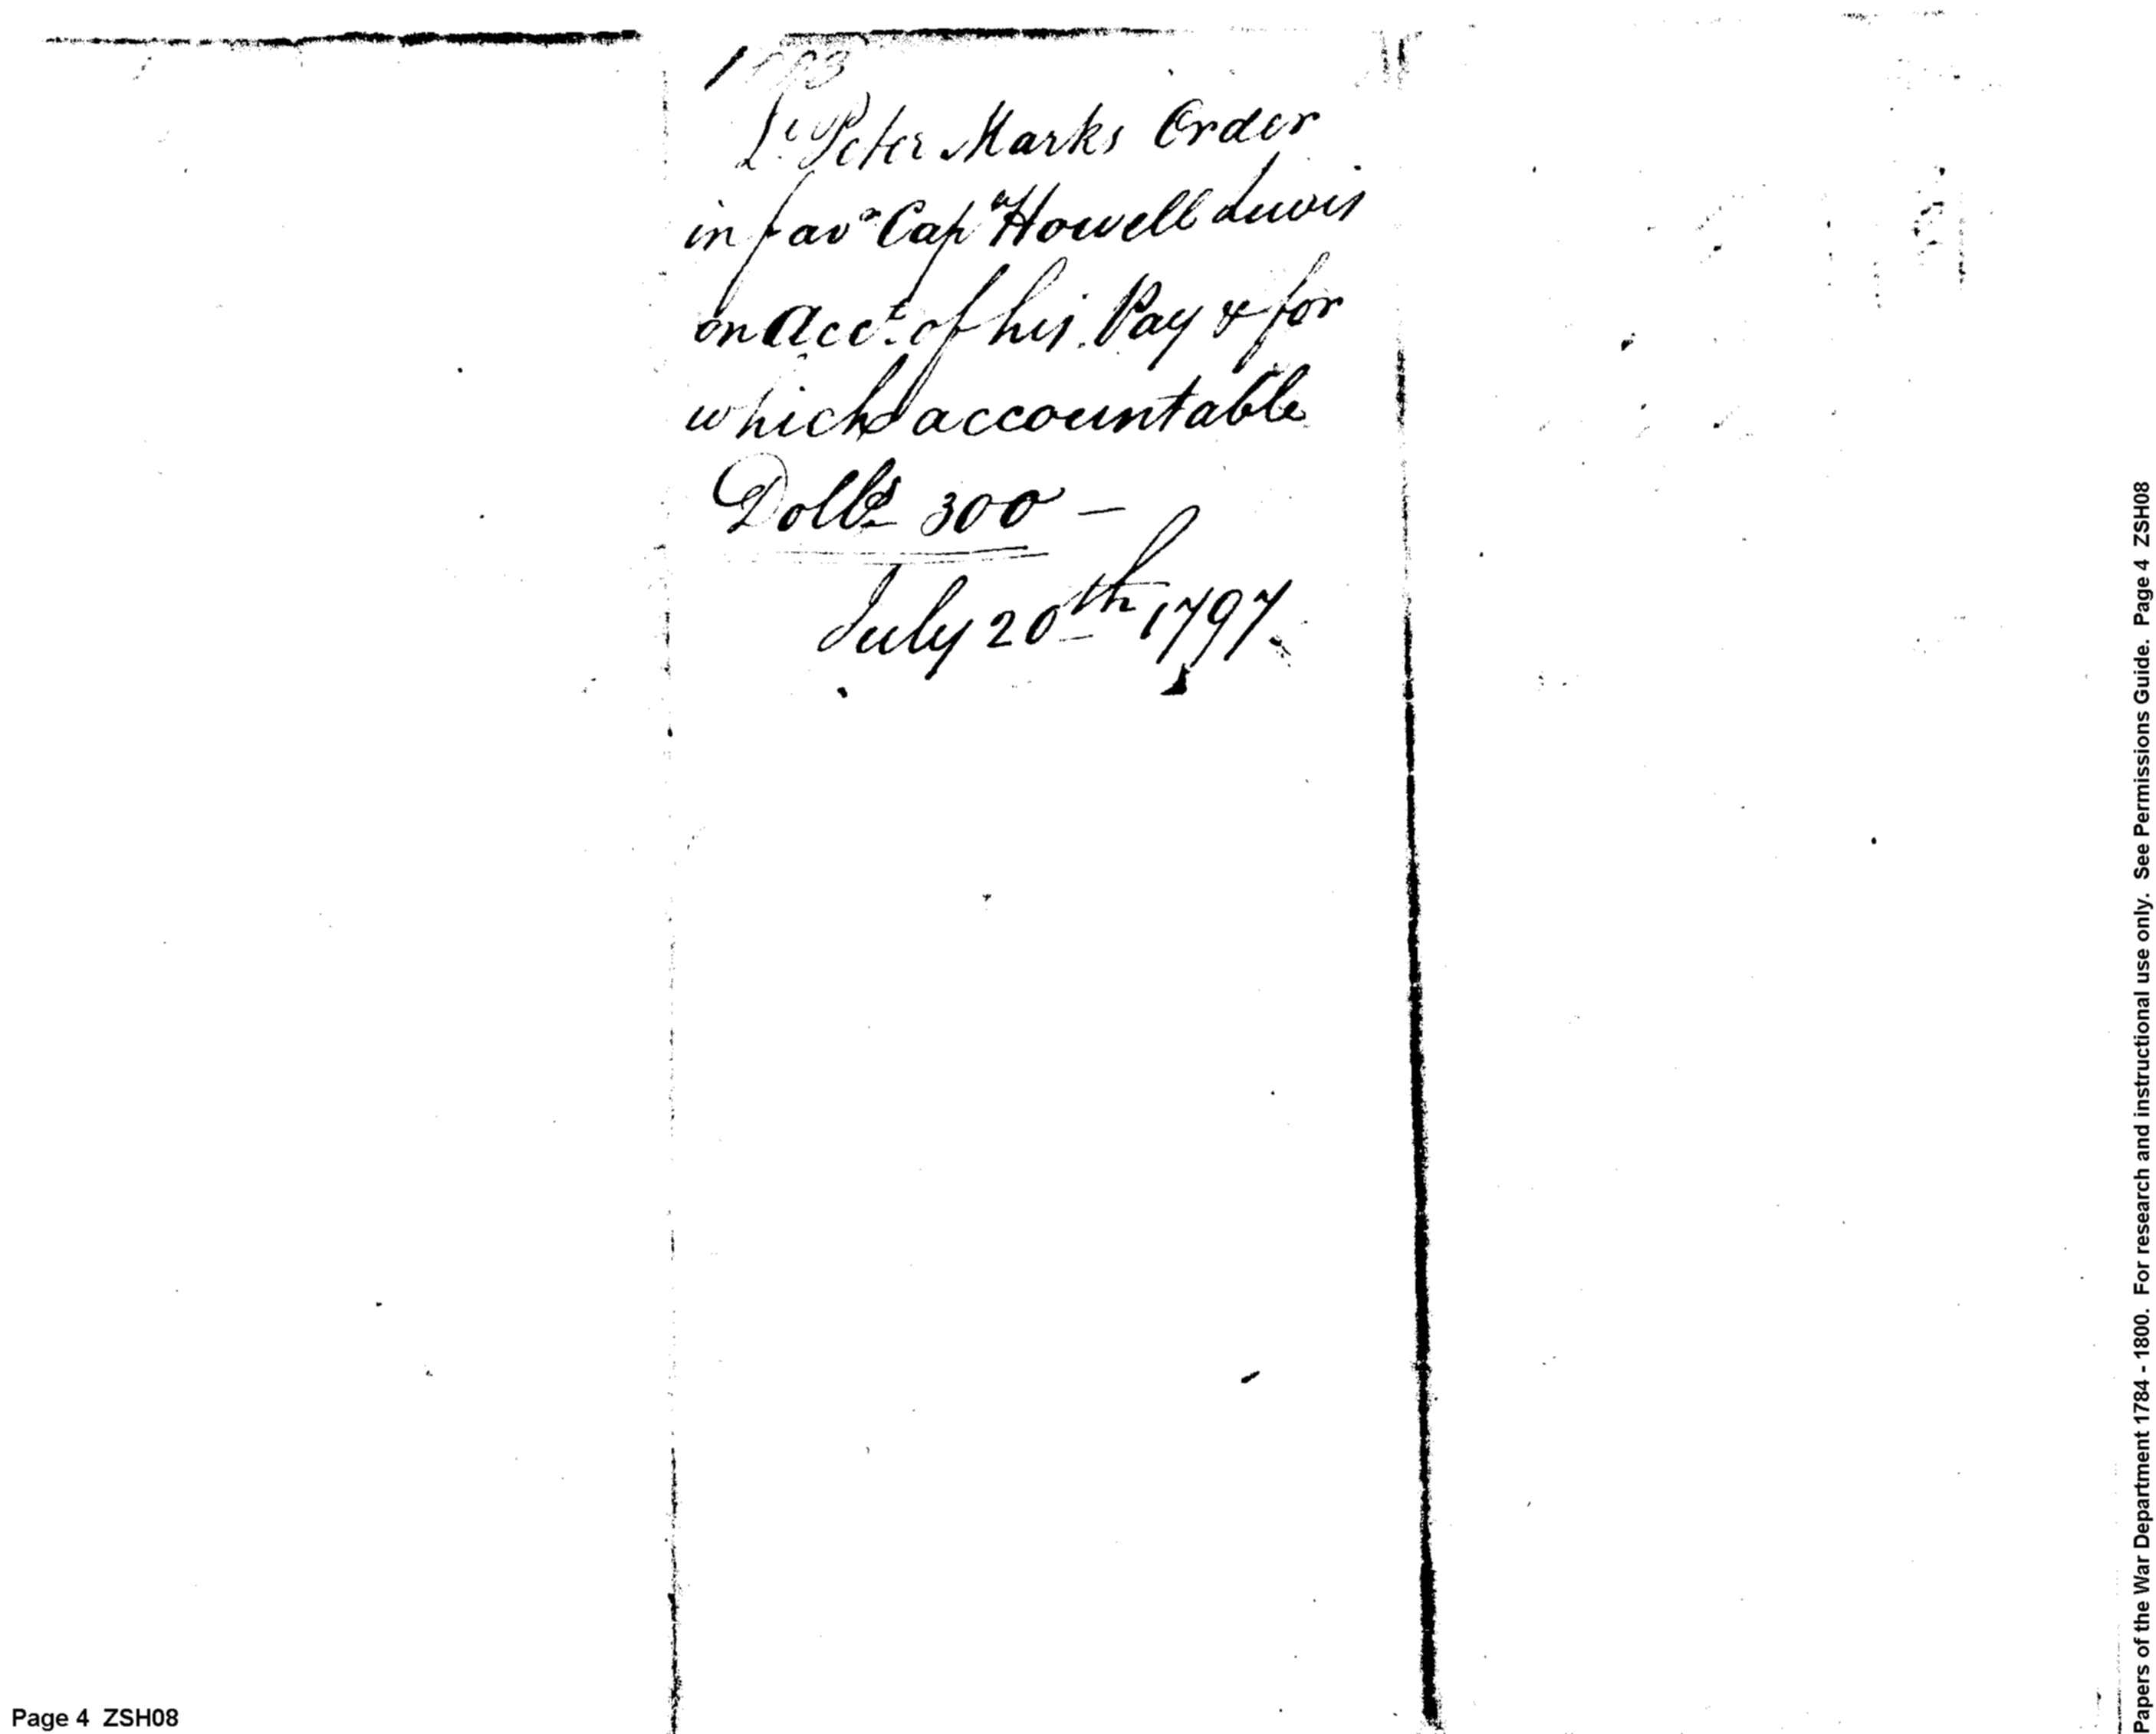 Lt Peter Marks Order
in favr Capn Howell Lewis
on Acct. of his Pay & for
which accountable
Dolls 300 —
July 20th 1797.
Page 4 ZSH08
Papers of the War Department 1784 - 1800. For research and instructional use only. See Permissions Guide. Page 4 ZSH08